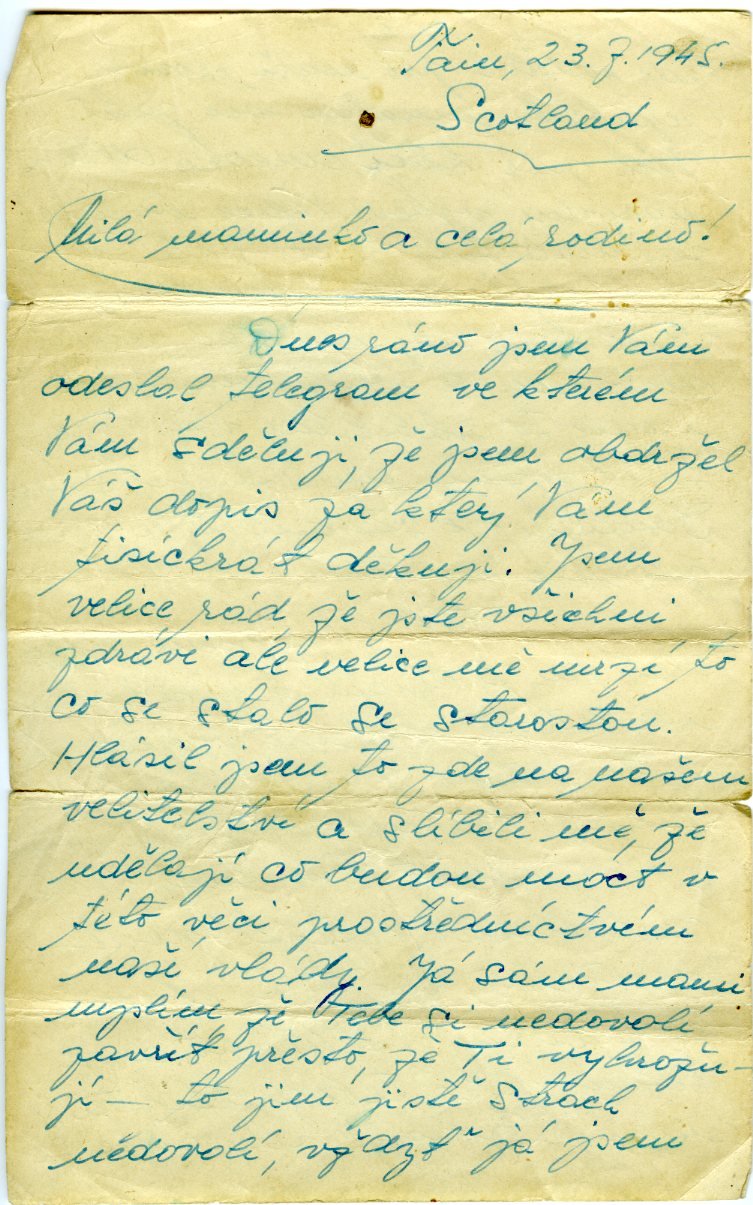 Tain, 23.7.1945.
Scotland
Milá maminko a celá rodino!
Dnes ráno jsem Vám
odeslal telegram ve kterém
Vám sděluji, že jsem obdržel
Váš dopis za který Vám
tisíckrát děkuji. Jsem
velice rád že jste všichni
zdrávi ale velice mě mrzí to
co se stalo se starostou.
Hlásil jsem to zde na našem
velitelství a slíbili mě, že
udělají co budou moct v
této věci prostředníctvém
naší vlády. Já sám mami
myslím že Tebe si nedovolí
zavřít přesto, že Ti vyhrožu-
jí - to jim jistě strach
nedovolí, vždyť já jsem